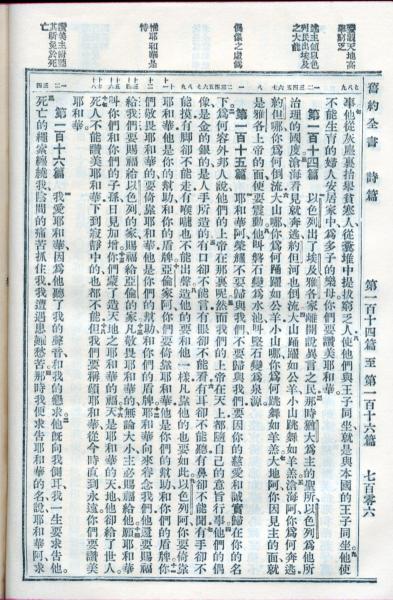 舊約全書 詩篇 第一百十四篇至第一百十六篇 七百零六
述主領以色列民出埃及之大能
偶像之虛偽
惟耶和華是恃
事他從灰塵裏抬舉貧寒人從糞堆中提拔窮乏人使他們與王子同坐就是與本國的王子同坐他使
不能生育的婦人安居家中為多子的樂母你們要讚美耶和華
第一百十四篇 以色列出了埃及雅各家離開說異言之民那時猶大為主的聖所以色列為他所
治理的國度滄海看見就奔逃約但河也倒流大山踊躍如公羊小山跳舞如羊羔滄海阿你為何奔逃
約但哪你為何倒流大山哪你為何踊躍如公羊小山哪你為何跳舞如羊羔大地阿你因見主的面就
是雅各上帝的面便要震動他叫磐石變為水池叫堅石變為泉源
第一百十五篇 耶和華阿榮耀不要歸與我們不要歸與我們要因你的慈愛和誠實歸在你的名
下為何容外邦人說他們的上帝在那裏呢然而我們的上帝在天上都隨自己的意旨行事他們的偶
像是金的銀的是人手所造的有口卻不能言有眼卻不能看有耳卻不能聽有鼻卻不能聞有手卻不
能摸有腳卻不能走有喉嚨也不能出聲造他的要和他一樣凡靠他的也要如此以色列阿你要靠
耶和華他是你的幫助和你的盾牌亞倫家阿你們要倚靠耶和華他是你們的幫助和你們的盾牌你
們敬畏耶和華的要倚靠耶和華他是你們的幫助和你們的盾牌耶和華向來眷念我們他還要賜福
給我們要賜福給以色列的家賜福給亞倫的家凡敬畏耶和華的無論大小主必賜福給他願耶和華
叫你們和你們的子孫日見加增你們蒙了造天地之耶和華的福天是耶和華的天地他卻給了世人
死人不能讚美耶和華下到寂靜中的也都不能但我們要稱頌耶和華從今時直到永遠你們要讚美
耶和華
第一百十六篇 我愛耶和華因為他聽了我的聲音和我的懇求他既向我側耳我一生要求告他
死亡的繩索纏繞我陰間的痛苦抓住我我遭遇患難愁苦那時我便求告耶和華的名說耶和華阿求